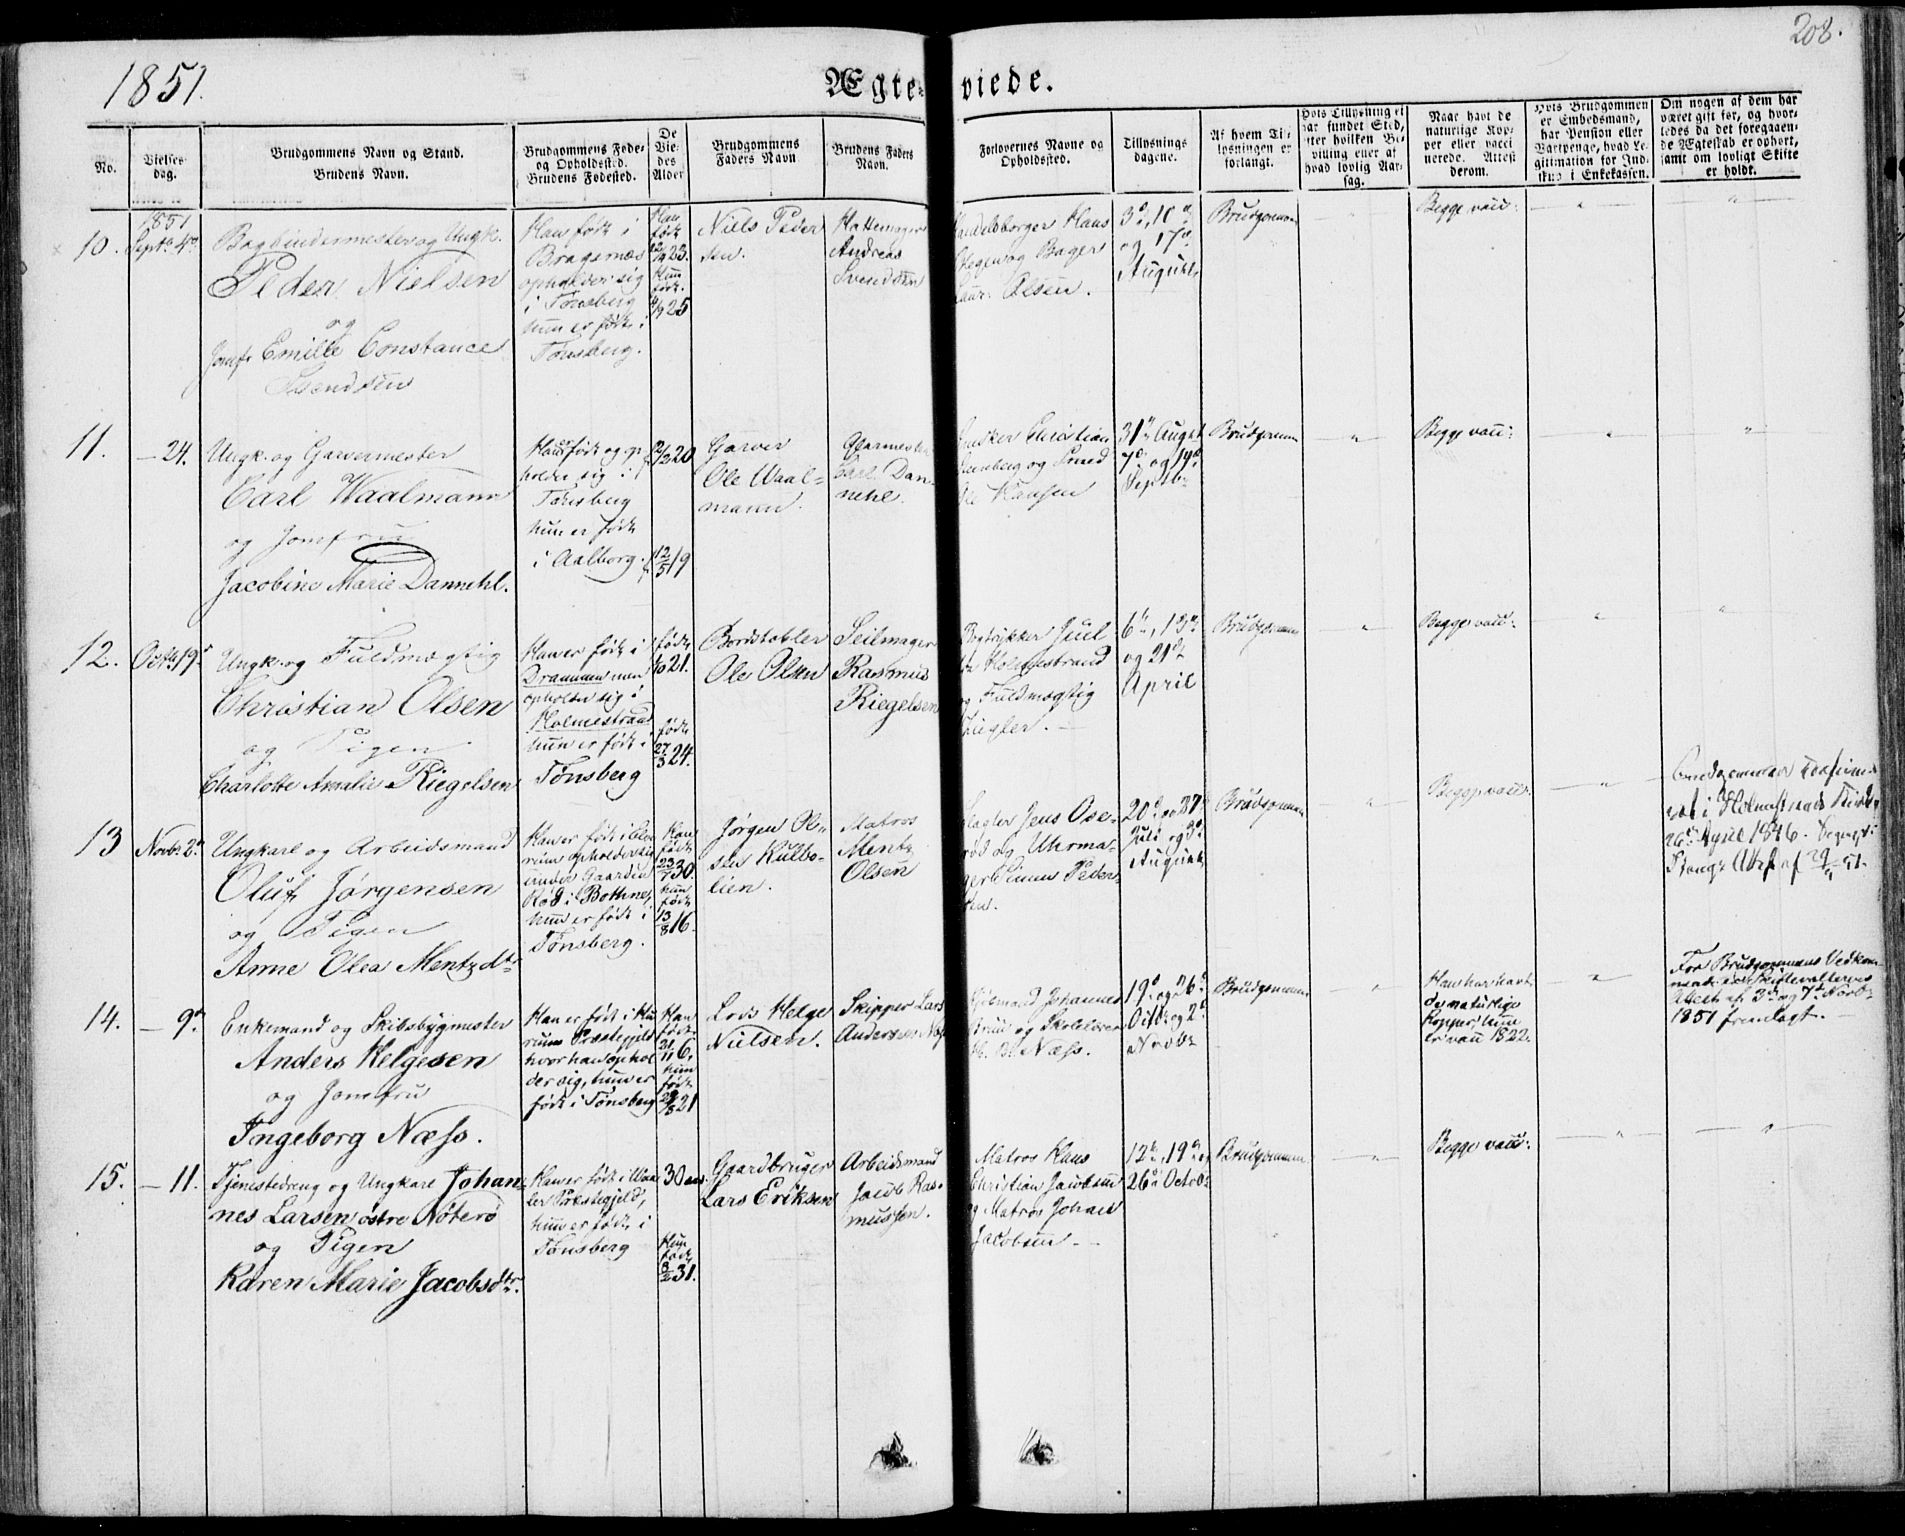 208.
1851.
Ægteviede.
No.
Vielses-
dag.
Brudgommens Navn og Stand.
Brudens Navn.
Brudgommens Føde-
og Opholdssted.
Brudens Fødested.
De
Vie-
des
Alder
Brudgommens
Faders Navn
Brudens Faders
Navn.
Forlovernes Navne og
Opholdssted.
Tillysnings
dagene.
Af hvem Til-
lysningen er
forlangt.
Hvis Tillysning ei
har fundet Sted,
efter hvilken Be-
villing eller af
hvad lovlig Aar-
sag.
Naar havt de
naturlige Kop-
per eller vacci
nerede. Attest
derom.
Hvis Brudgommen
er Embedsmand,
har Pension eller
Vartpenge, hvad Le-
gitimation for Ind-
skud i Enkekassen.
Om nogen af dem har
været gift før, og hvor-
ledes da det foregaaen-
de Ægteskab er ophørt,
samt om lovligt Skifte
er holdt.
10.
1851
Septr. 4de
Bogbindermester og Ungk.
Peder Nielsen
og
Jomfr Emilie Constance
Svendsen
Han født i
Bragernæs
opholder sig
i Tønsberg
hun er født i
Tønsberg.
Han
født
23.
Hun
født
25
Niels Peder
sen.
Hattemager
Andreas
Svendsen
Handelsborger Hans
og Bager
Olsen.
3d, 10de
og 17de
August
Brudgommen
"
Begge vacc:
"
"
11.
— 24.
Ungk. og Garvermester
Carl Waalmann
og Jomfru
Jacobine Marie Dannehl.
Han født og op
holder sig i
Tønsberg
hun er født
i Aalborg.
20
12/5 19
Garver
Ole Waal-
mann.
Glarmester
Carl Dan-
nehl.
Christian
og Smed
Ole Hansen
31te August
7de og 14de
Septbr
Brudgommen
"
Begge vacc:
"
"
12.
Octbr 19de
Ungk. og Fuldmægtig
Christian Olsen
og Pigen
Charlotte Amalie Riegelsen
Han er født i
Drammen men
opholder sig i
Holmestrand
hun er født i
Tønsberg
født
21.
født
27/3 24.
Bordstabler
Ole Olsen
Seilmager
Rasmus
Riegelsen
Bogtrykker Juul
Holmestrand
og Fuldmægtig
6te, 13de
og 21de
April
Brudgommen
"
Begge vacc:
"
"
13
Novbr. 2de
Ungkarl og Arbeidsmand
Oluf Jørgensen
og Pigen
Anne Olea Mentzdtr
Han er født i
opholder sig
under Gaarden
Rød i Bothne,
hun er født i
Tønsberg.
Han
født
23/7 30.
hun
født
13/8 16.
Jørgen Ol-
sen Kulbo-
lien.
Matros
Mentz
Olsen
Slagter Jens Ose-
rød og Uhrma-
ger Simen Peder-
sen.
20de og 27de
Juli og 3de
August
Brudgommen
"
Begge vacc:
"
Brudgommen
i Holmestrands
26de April 1846.
Attest af
14.
— 9de
Enkemand og Skibsbygmester
Anders Helgesen
og Jomfru
Ingeborg Næss.
Han er født i Hu
rum Præstegjeld
hvor han ophol
der sig, hun er
født i Tønsberg
Han
født
21/11 6.
hun
født
29/8 21
Lods Helge
Nielsen.
Skipper Lars
Andersen Næss
Johannes
Brud og Skolelærer
Næss.
19de og 26de
Octbr og 2de
Novbr
Brudgommen
"
Han har havt
de naturlige
Kopper, hun
er vacc 1822.
"
For Brudgommens Vedkom-
mende er Skifteforvalternes
Attest af 3de og 7de Novbr
1851 fremlagt.
15.
— 11.
Tjenestedreng og Ungkarl Johan-
nes Larsen østre Nøterø
og Pigen
Karen Marie Jacobsdtr.
Han er født i Waa
ler Præstegjeld,
hun er født i
Tønsberg
30 aar.
Hun
født
8/2 31.
Gaardbruger
Lars Eriksen
Arbeidsmand
Jacob Ras-
mussen.
Matros Hans
Christian Jacobsen
og Matros Johan
Jacobsen
12te, 19de og
26de Octobr
Brudgommen
"
Begge vacc:
"
"